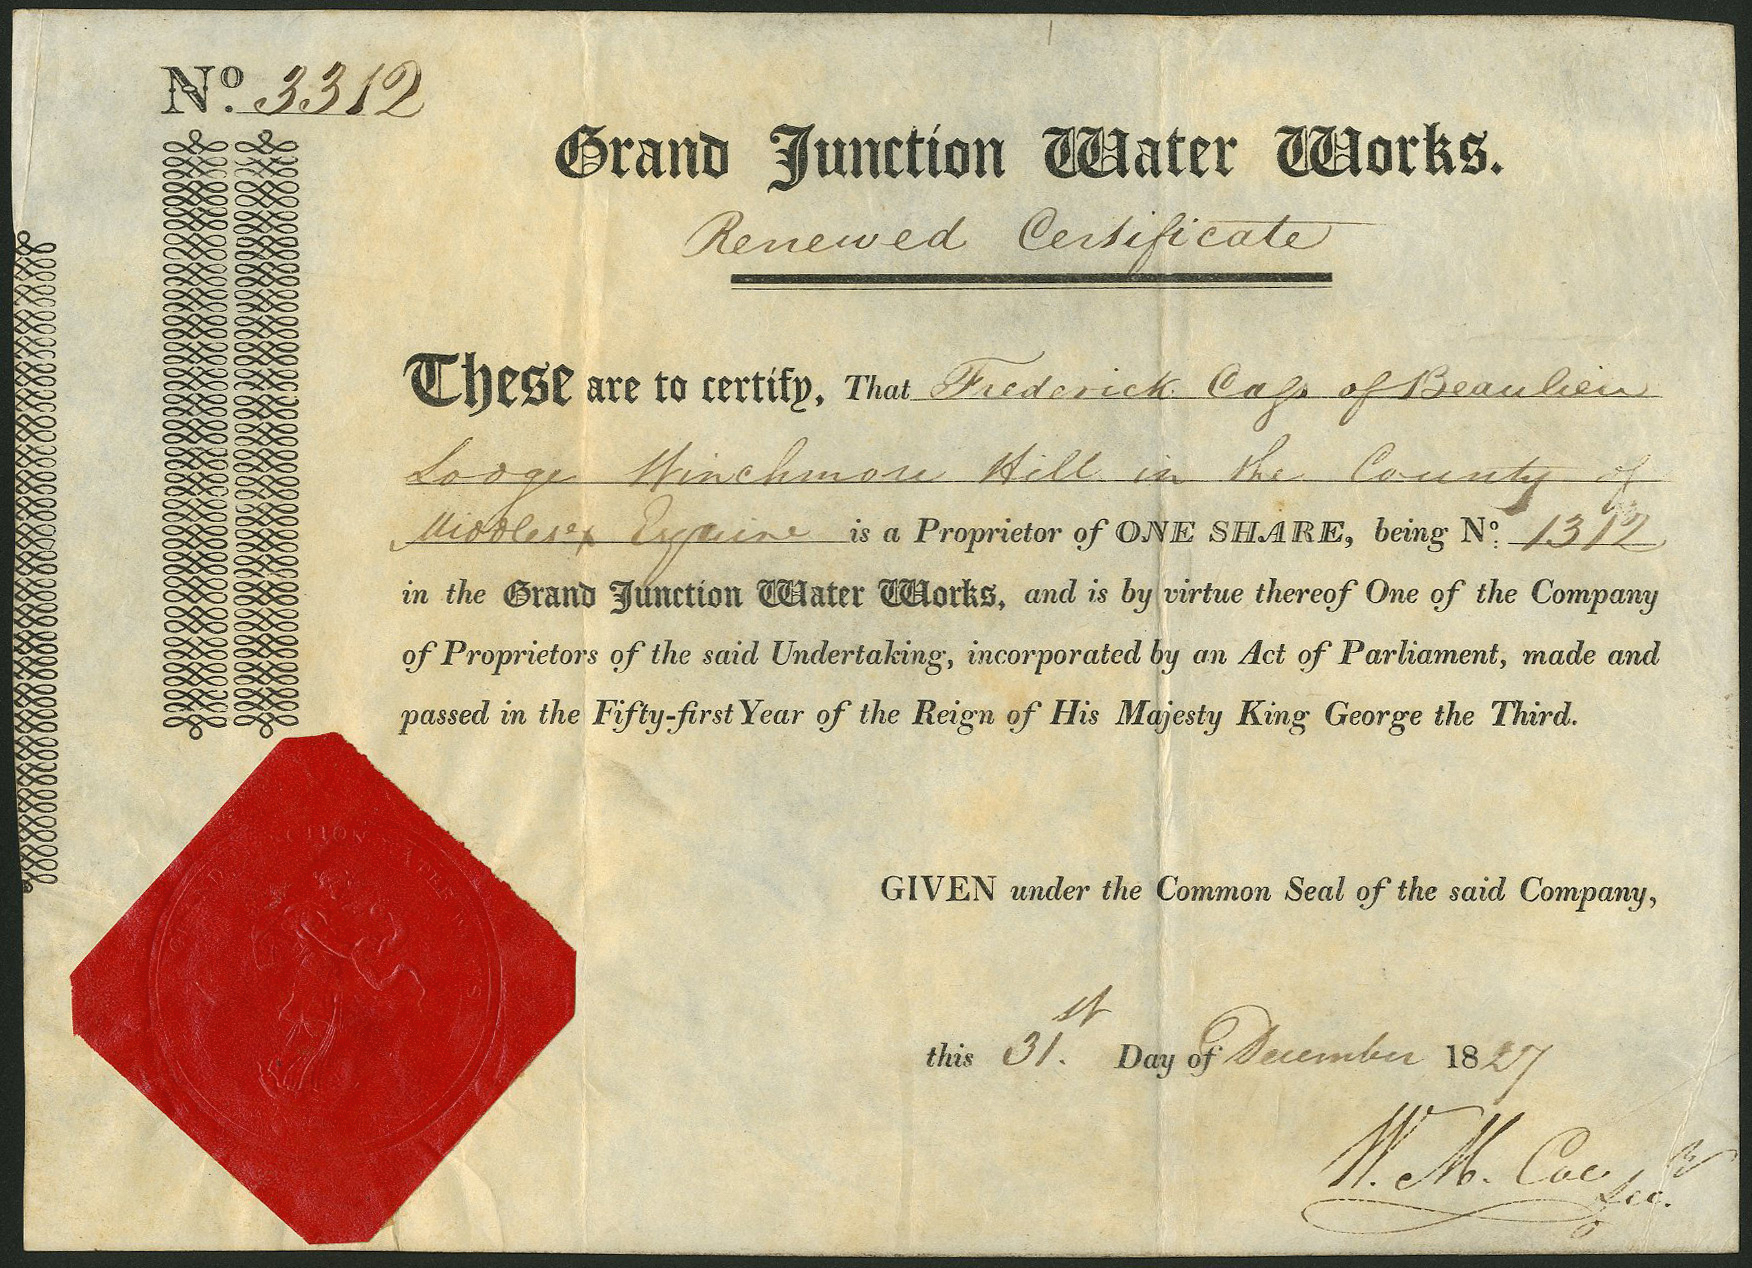 No. 3312
Grand Junction Water Works.
Renewed Certificate
These are to certify, That Frederick Cass of Beaulieu
Lodge Winchmore Hill in the County of
Middlesex Esquire is a Proprietor of ONE SHARE, being No. 1312
in the Grand Junction Water Works, and is by virtue thereof One of the Company
of Proprietors of the said Undertaking, incorporated by an Act of Parliament, made and
passed in the Fifty-first Year of the Reign of His Majesty King George the Third.
GIVEN under the Common Seal of the said Company,
this 31.st Day of December 1827
W. M. Coe
Sec.